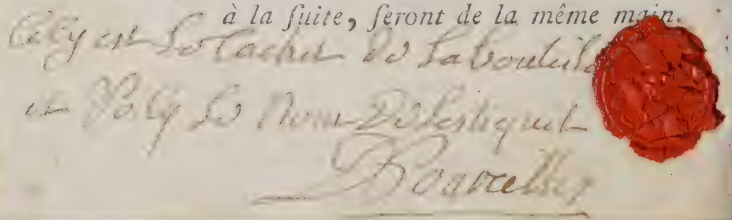 à la ſuite, ſeront de la même main.
Cecy est Le Cachet De La bouteille
et Voicy Le Nom De Lestiquet